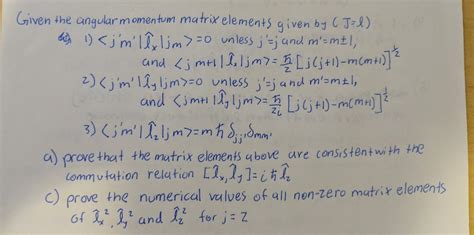 Given the angular momentum matrix elements given by (J=l)
1) <j'm'|l̂ₓ|jm>=0 unless j'=j and m'=m±1,
and <jm±1|l̂ₓ|jm>=ħ/2[j(j+1)-m(m±1)]^½
2) <j'm'|l̂y|jm>=0 unless j'=j and m'=m±1,
and <jm±1|l̂y|jm>=±ħ/2i[j(j+1)-m(m±1)]^½
3) <j'm'|l̂z|jm>=mħδjj'δmm'
a) prove that the matrix elements above are consistent with the
commutation relation [l̂ₓ,l̂y]=iħl̂z
c) prove the numerical values of all non-zero matrix elements
of l̂ₓ², l̂y² and l̂z² for j=2